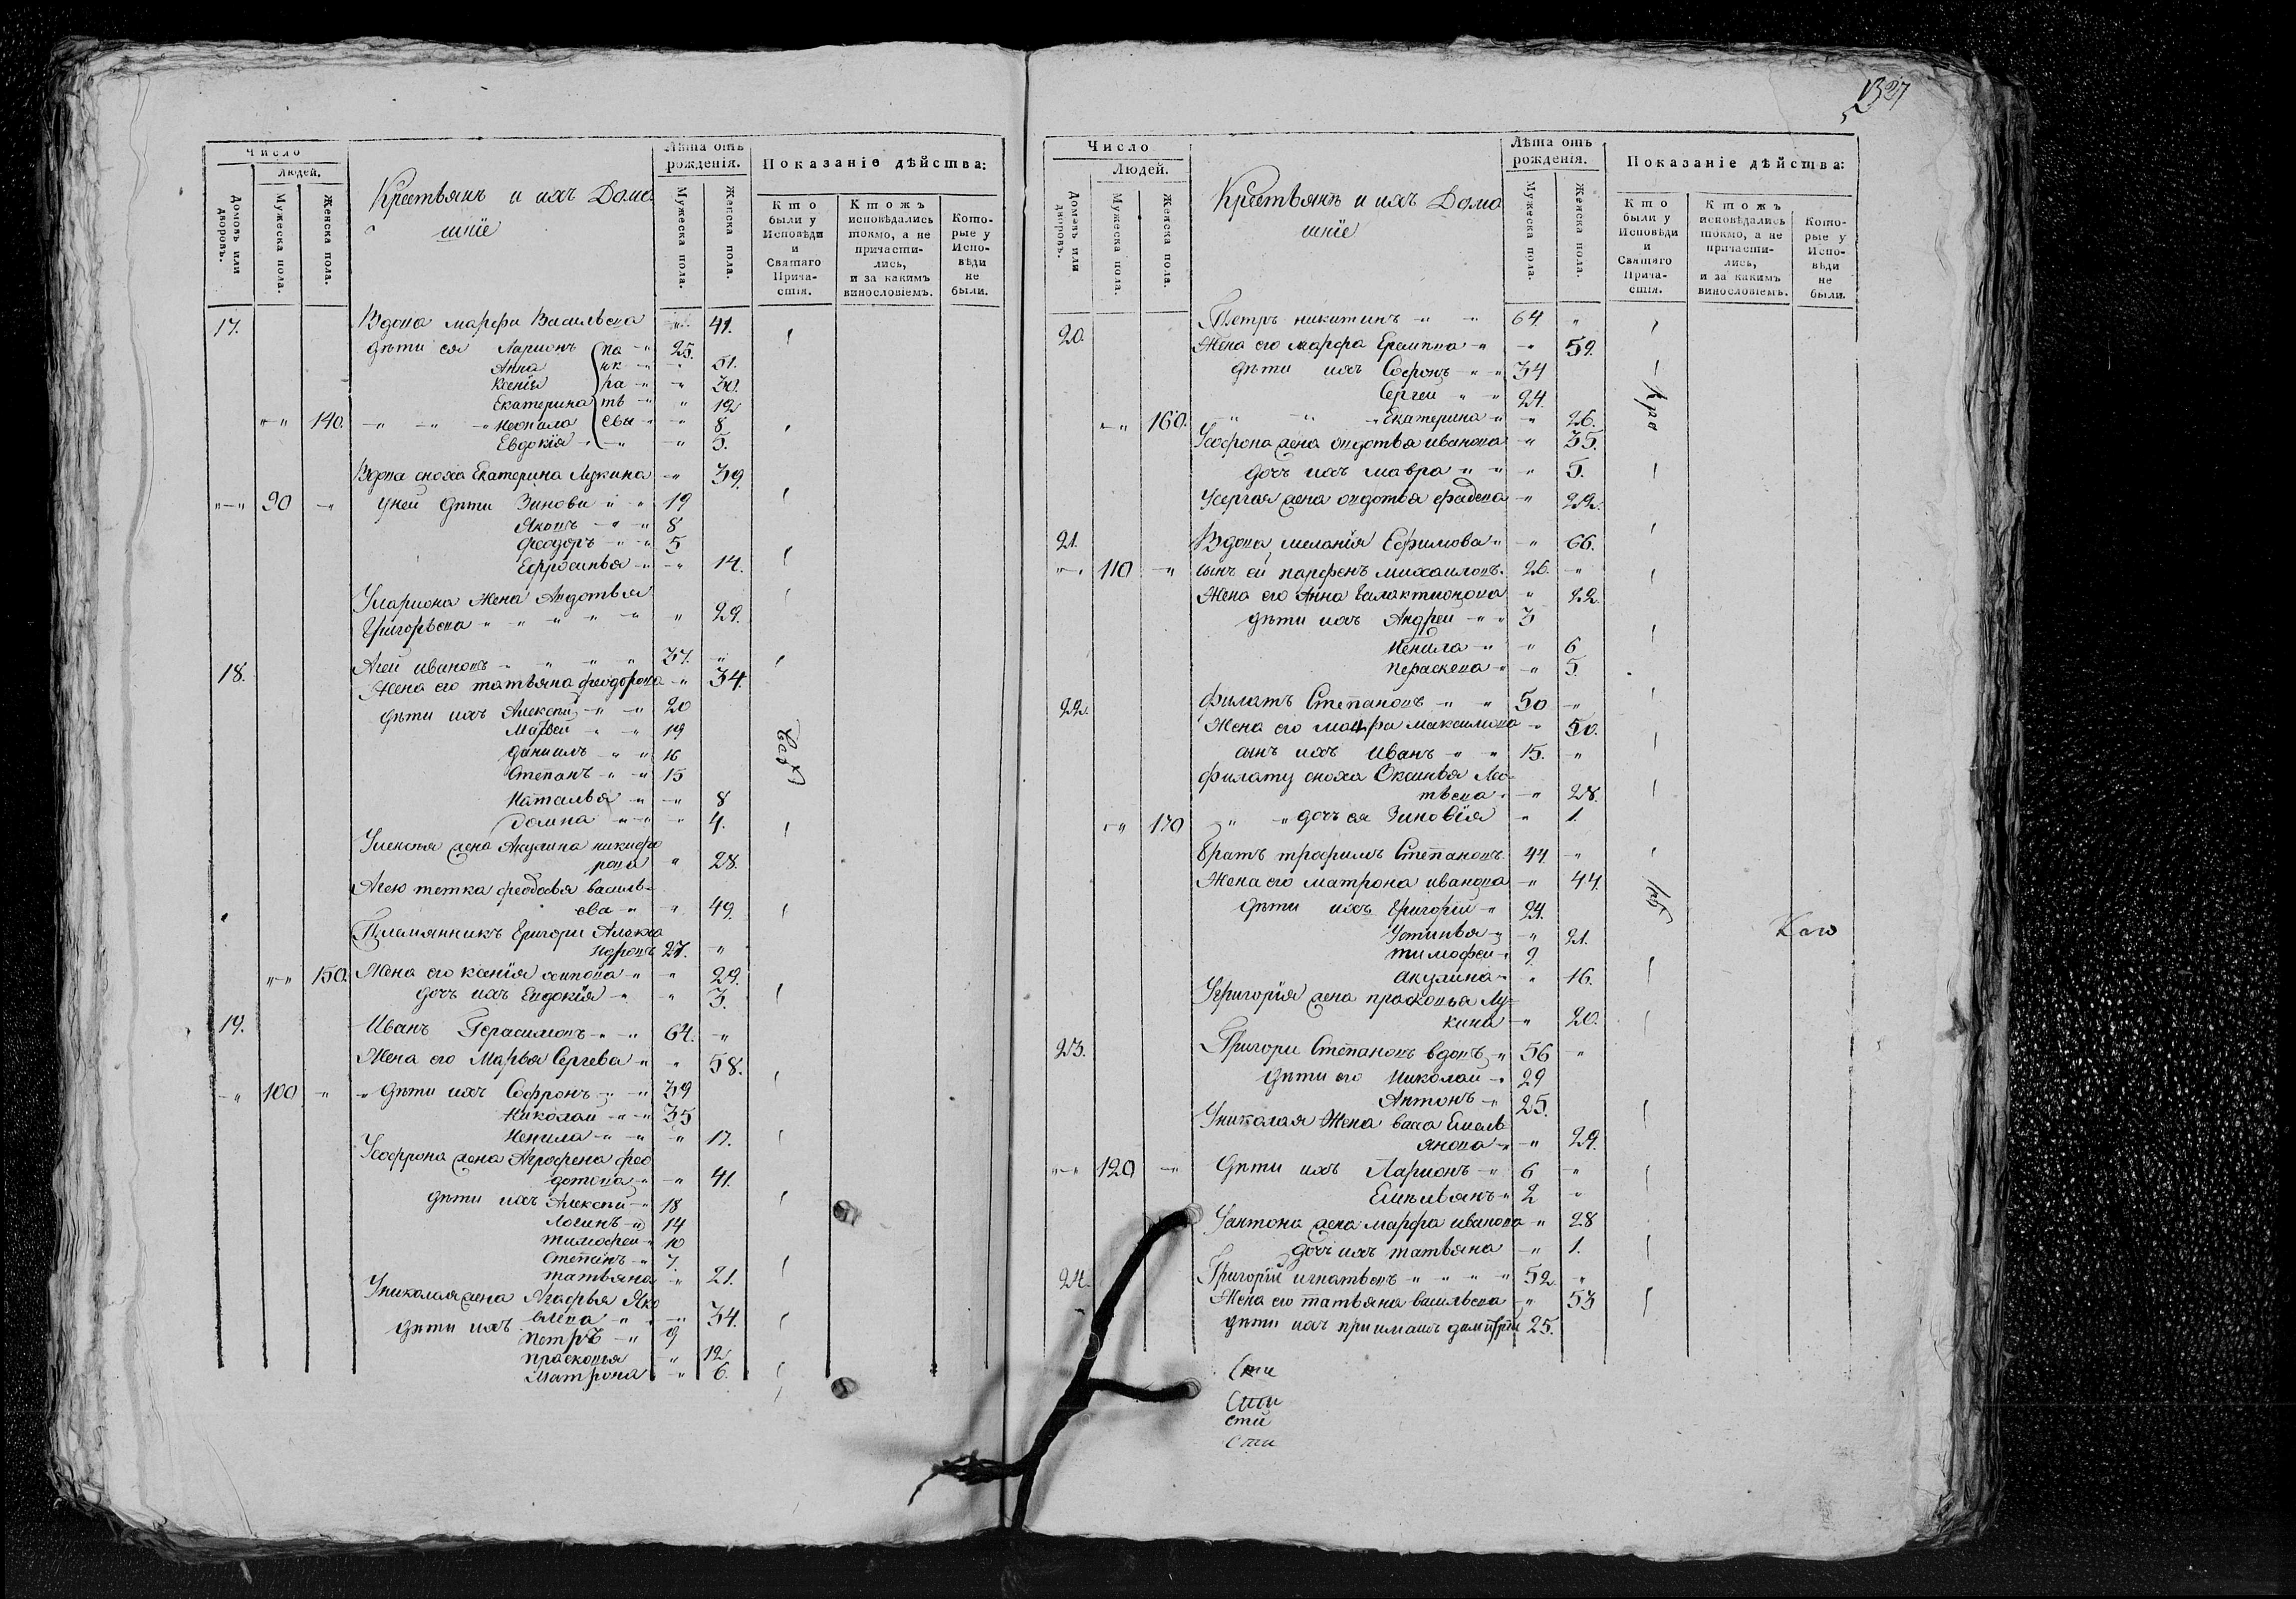 Число
Людей.
Домовъ или дворовъ.
Мужеска пола.
Женска пола.
Крестьянъ и ихъ Дома
шніе
Лѣта отъ рожденія.
Мужеска пола.
Женска пола.
Показаніе дѣйства:
Кто были у Исповѣди и Святаго Причастія.
Ктожъ исповѣдались токмо, а не причастились, и за какимъ винословіемъ.
Которые у Исповѣди не были.
17. Вдова марфа Васильева 41.
дѣти ея Ларионъ 25.
Анна 51.
Ксенія 30.
Екатерина 12
140. неонила 8
Евдокія 5.
Вдова сноха Екатерина Лукина 39.
90 уней дѣти Зинови 19
Яковъ 8
Феодоръ 5
Ефросинья 14.
Улариона Жена Авдотья
Григорьева 29.
18. Агей ивановъ 37.
Жена его татьяна феодорова 34.
дѣти ихъ Алексѣй 20
Матвей 19
даниилъ 16
Степанъ 15
Наталья 8
домна 4.
Уалексѣя жена Акулина никифо
рова 28.
Агею тетка феодосья василь-
ева 49.
Племянникъ Григори
27.
150. Жена его ксенія осипова 29.
дочь ихъ Евдокія 3.
19. Иванъ Герасимовъ 64.
Жена его Марья Сергеева 58.
100 дѣти ихъ Софронъ 39
Николай 35
Ненила 17.
Усофрона жена Аграфена фео
дотова 41.
дѣти ихъ Алексѣй 18
Логинъ 14
тимофеи 10
Степанъ 7.
татьяна 21.
Униколая жена Агафья Яко
влева 34.
дѣти ихъ петръ 9
прасковья 12
Матрона 6.
Всѣ
Число
Людей.
Домовъ или дворовъ.
Мужеска пола.
Женска пола.
Крестьянъ и ихъ Дома
шніе
Лѣта отъ рожденія.
Мужеска пола.
Женска пола.
Показаніе дѣйства:
Кто были у Исповѣди и Святаго Причастія.
Ктожъ исповѣдались токмо, а не причастились, и за какимъ винословіемъ.
Которые у Исповѣди не были.
20. Петръ никитинъ 64.
Жена его марфа 59.
дѣти ихъ Софронъ 34
Сергеи 24.
160. Екатерина 26.
Усофрона жена авдотья иванова 35.
дочь ихъ мавра 5.
Усергея жена авдотья фадеева 22.
21. Вдова мелания Ефимова 66.
110 сынъ ей парфенъ михаиловъ 26.
Жена его Анна Галактионова 22.
дѣти ихъ Андреи 3
Ненила 6
Параскева 5.
22. Филатъ Степановъ 50
Жена его марфа максимова 50.
сынъ ихъ Иванъ 15.
Филату сноха Оксинья Ма
твеева 28.
170 дочь ея Зиновія 1.
братъ трофимъ Степановъ 44.
Жена его матрона иванова 44.
дѣти ихъ Григорій 24.
Устинья 21.
тимофеи 9
акулина 16.
Угригорія жена прасковья Лу-
кина 20.
23. Григори Степановъ вдовъ 56
дѣти его николаи 29
Антонъ 25.
Униколая Жена васа Емель
янова 29.
120 дѣти ихъ Ларионъ 6
Емельянъ 2
Уантона жена марфа иванова 28
дочь ихъ татьяна 1.
24. Григорій игнатьевъ 52
Жена его татьяна васильева 53
дѣти ихъ приимашъ димитрій 25.